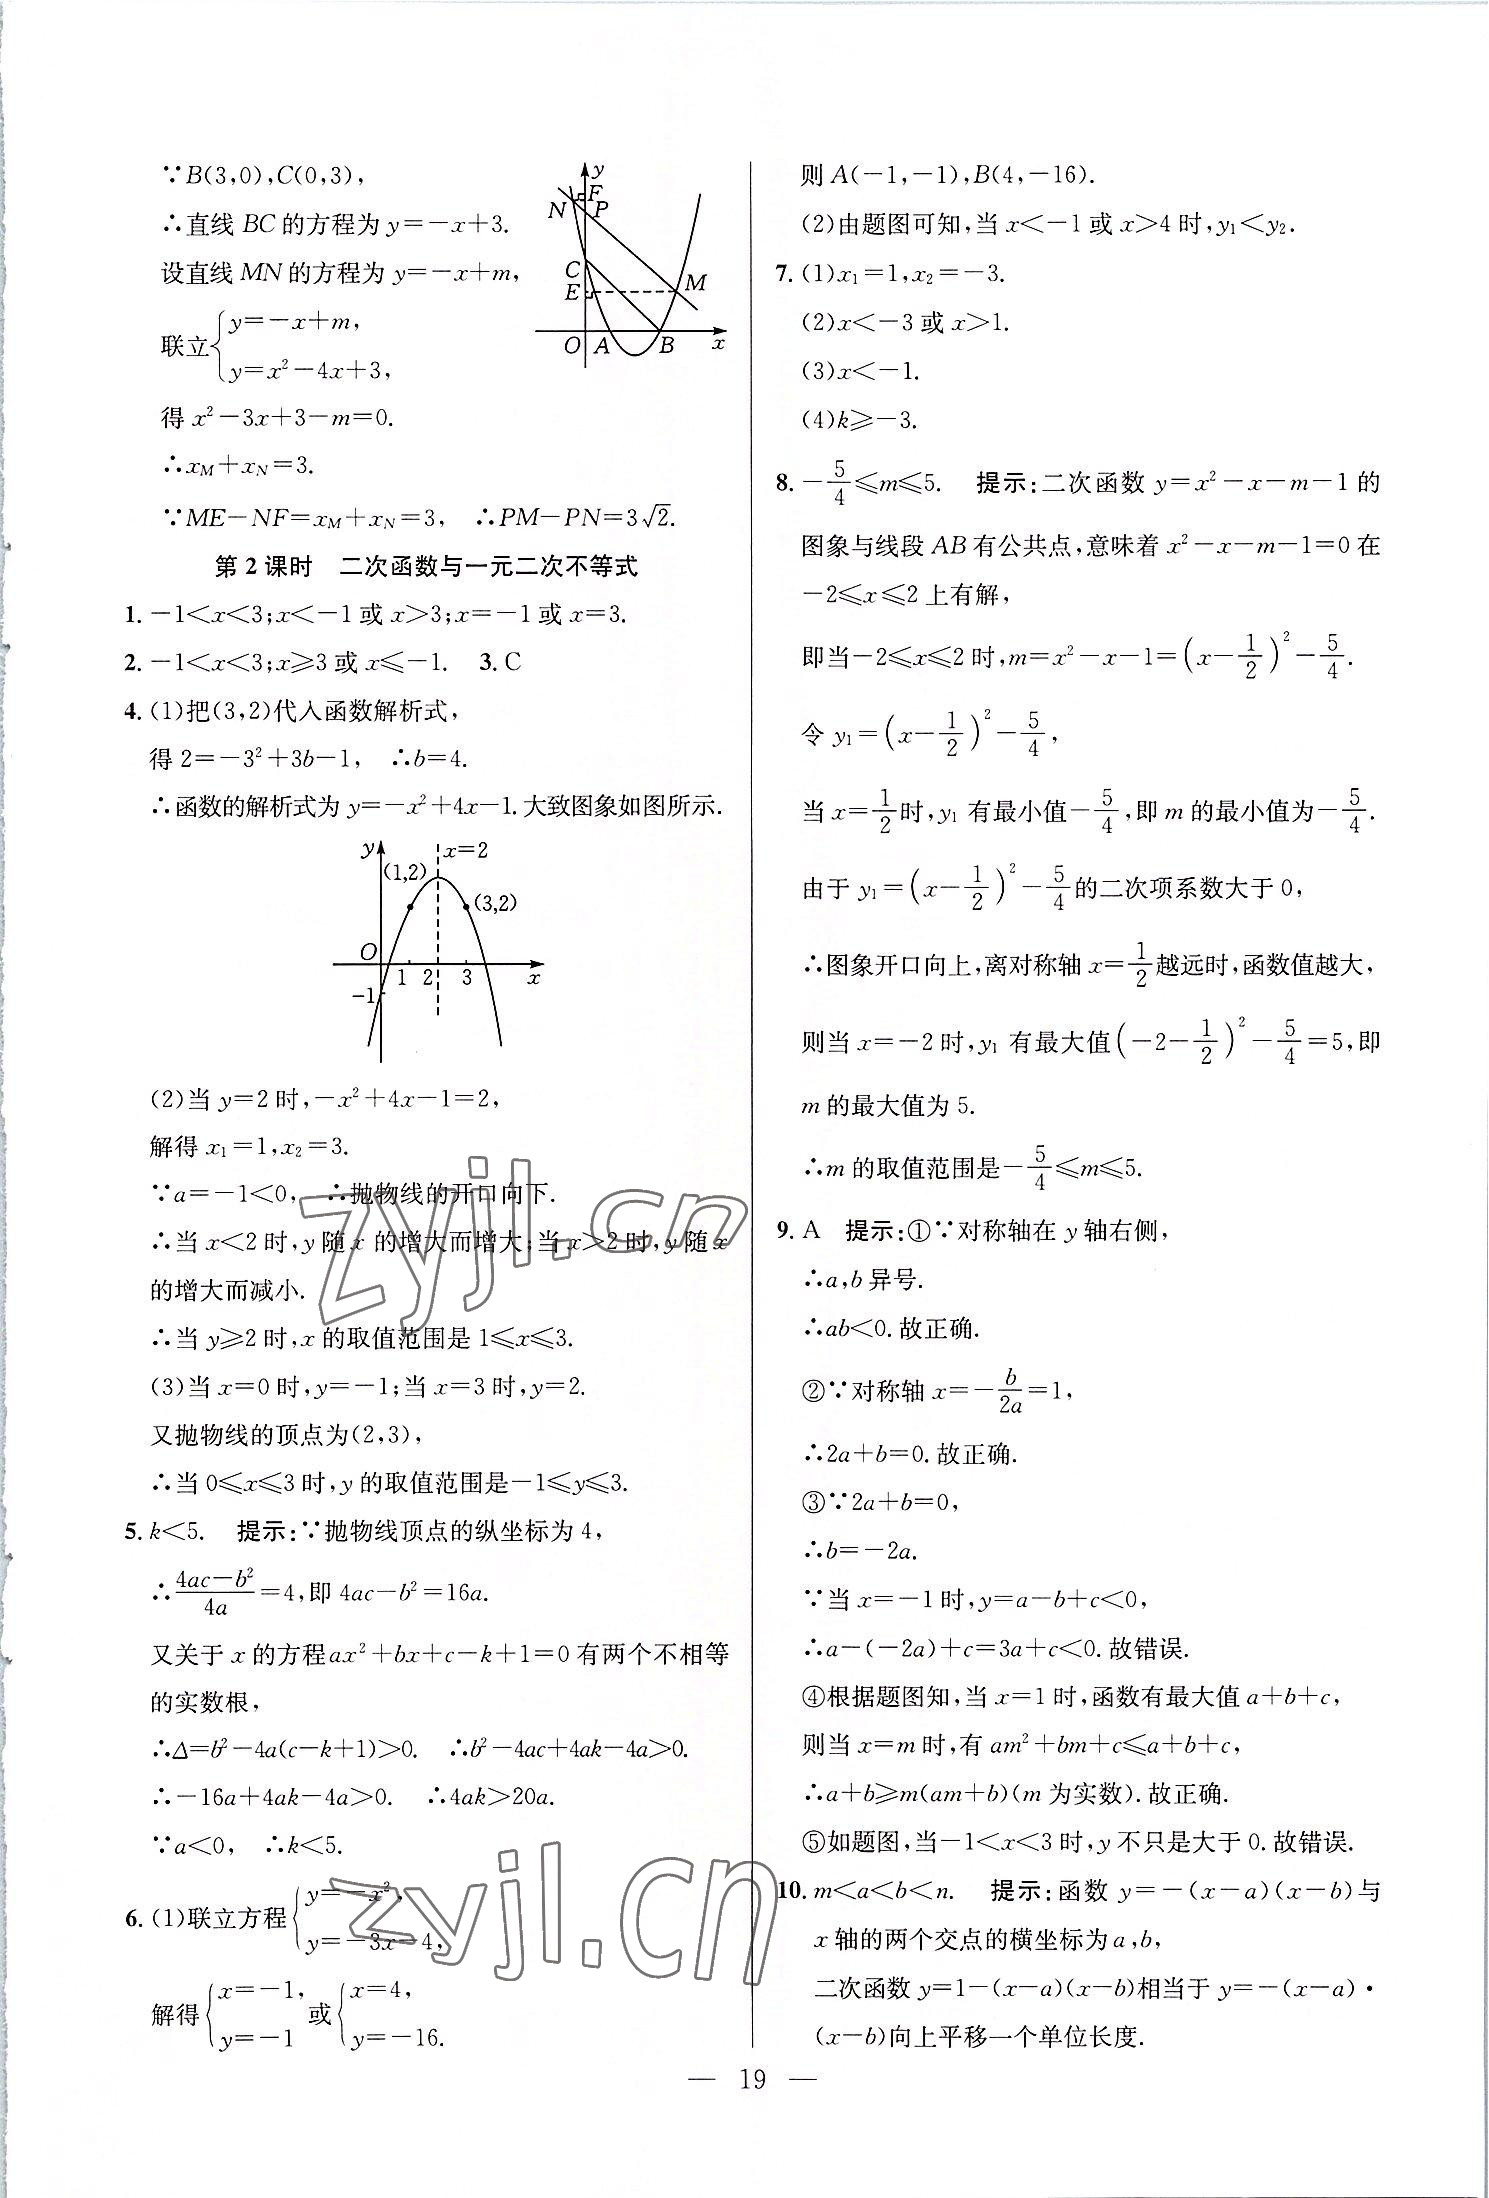 ∵B(3,0),C(0,3),
∴直线 BC 的方程为 y=-x+3.
设直线 MN 的方程为 y=-x+m,
联立{y=-x+m,
y=x²-4x+3,
得 x²-3x+3-m=0.
∴x_M+x_N=3.
∵ME-NF=x_M+x_N=3, ∴PM-PN=3√2.
y
F
N P
C
E M
O A B x
第 2 课时 二次函数与一元二次不等式
1. -1<x<3;x<-1 或 x>3;x=-1 或 x=3.
2. -1<x<3;x≥3 或 x≤-1. 3. C
4. (1)把(3,2)代入函数解析式,
得 2=-3²+3b-1, ∴b=4.
∴函数的解析式为 y=-x²+4x-1.大致图象如图所示.
y x=2
(1,2)
(3,2)
O
1 2 3 x
-1
(2)当 y=2 时,-x²+4x-1=2,
解得 x₁=1,x₂=3.
∵a=-1<0, ∴抛物线的开口向下.
∴当 x<2 时,y 随 x 的增大而增大;当 x>2 时,y 随 x
的增大而减小.
∴当 y≥2 时,x 的取值范围是 1≤x≤3.
(3)当 x=0 时,y=-1;当 x=3 时,y=2.
又抛物线的顶点为(2,3),
∴当 0≤x≤3 时,y 的取值范围是-1≤y≤3.
5. k<5. 提示:∵抛物线顶点的纵坐标为 4,
∴(4ac-b²)/4a=4,即 4ac-b²=16a.
又关于 x 的方程ax²+bx+c-k+1=0 有两个不相等
的实数根,
∴Δ=b²-4a(c-k+1)>0. ∴b²-4ac+4ak-4a>0.
∴-16a+4ak-4a>0. ∴4ak>20a.
∵a<0, ∴k<5.
6. (1)联立方程{y=-x²,
y=-3x-4,
解得{x=-1,
y=-1 或{x=4,
y=-16.
则 A(-1,-1),B(4,-16).
(2)由题图可知,当 x<-1 或 x>4 时,y₁<y₂.
7. (1)x₁=1,x₂=-3.
(2)x<-3 或 x>1.
(3)x<-1.
(4)k≥-3.
8. -5/4≤m≤5. 提示:二次函数 y=x²-x-m-1 的
图象与线段 AB 有公共点,意味着 x²-x-m-1=0 在
-2≤x≤2 上有解,
即当-2≤x≤2 时,m=x²-x-1=(x-1/2)²-5/4.
令 y₁=(x-1/2)²-5/4,
当 x=1/2时,y₁ 有最小值-5/4,即 m 的最小值为-5/4.
由于 y₁=(x-1/2)²-5/4的二次项系数大于 0,
∴图象开口向上,离对称轴 x=1/2越远时,函数值越大,
则当 x=-2 时,y₁ 有最大值(-2-1/2)²-5/4=5,即
m 的最大值为 5.
∴m 的取值范围是-5/4≤m≤5.
9. A 提示:①∵对称轴在 y 轴右侧,
∴a,b 异号.
∴ab<0.故正确.
②∵对称轴 x=-b/2a=1,
∴2a+b=0.故正确.
③∵2a+b=0,
∴b=-2a.
∵当 x=-1 时,y=a-b+c<0,
∴a-(-2a)+c=3a+c<0.故错误.
④根据题图知,当 x=1 时,函数有最大值 a+b+c,
则当 x=m 时,有 am²+bm+c≤a+b+c,
∴a+b≥m(am+b)(m 为实数).故正确.
⑤如题图,当-1<x<3 时,y 不只是大于 0.故错误.
10. m<a<b<n. 提示:函数 y=-(x-a)(x-b)与
x 轴的两个交点的横坐标为 a,b,
二次函数 y=1-(x-a)(x-b)相当于 y=-(x-a)·
(x-b)向上平移一个单位长度.
— 19 —
zyjl.cn
zyjl.cn